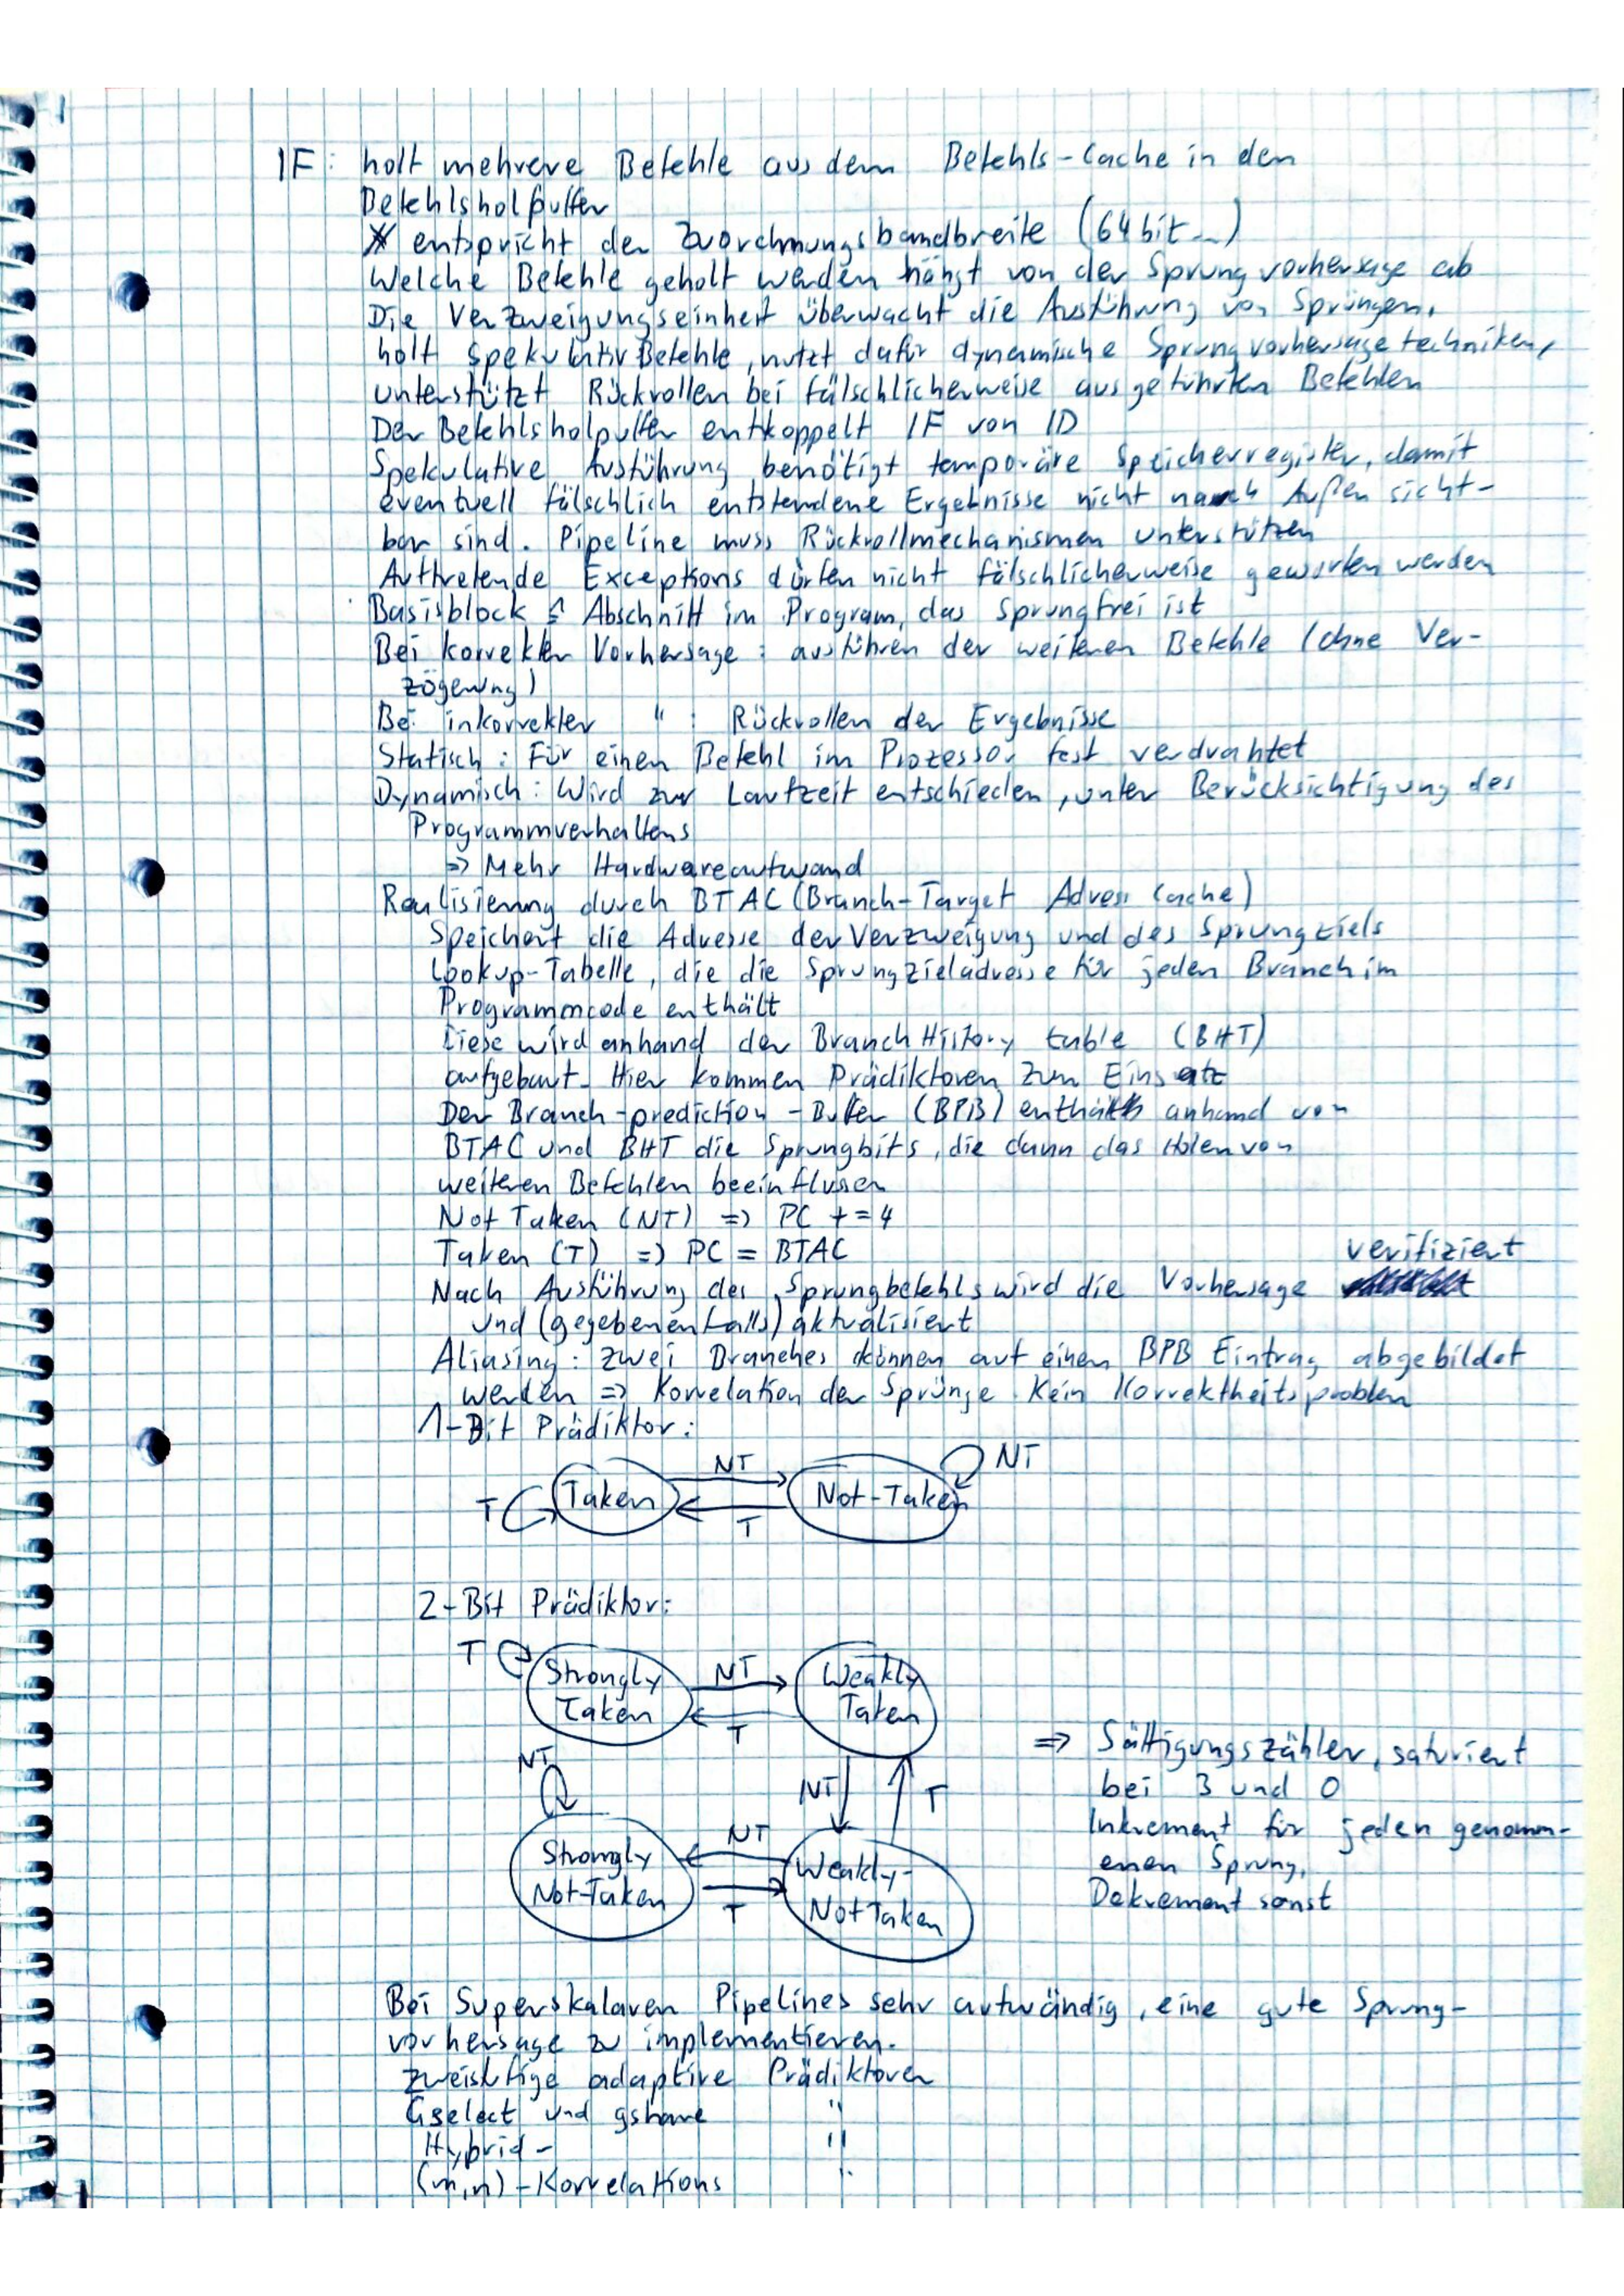 IF: holt mehrere Befehle aus dem Befehls-Cache in den
Befehlsholpuffer
entspricht der Zuordnungsbandbreite (64 bit...)
Welche Befehle geholt werden hängt von der Sprungvorhersage ab
Die Verzweigungseinheit überwacht die Ausführung von Sprüngen,
holt spekulativ Befehle, nutzt dafür dynamische Sprungvorhersagetechniken,
unterstützt Rückrollen bei fälschlicherweise ausgeführten Befehlen
Der Befehlsholpuffer entkoppelt IF von ID
Spekulative Ausführung benötigt temporäre Speicherregister, damit
eventuell fälschlich entstandene Ergebnisse nicht nach Außen sicht-
bar sind. Pipeline muss Rückrollmechanismen unterstützen
Auftretende Exceptions dürfen nicht fälschlicherweise geworfen werden
Basisblock ≙ Abschnitt im Program, das Sprungfrei ist
Bei korrekter Vorhersage: ausführen der weiteren Befehle (ohne Ver-
zögerung)
Bei inkorrekter " : Rückrollen der Ergebnisse
Statisch: Für einen Befehl im Prozessor fest verdrahtet
Dynamisch: Wird zur Laufzeit entschieden, unter Berücksichtigung des
Programmverhaltens
=> Mehr Hardwareaufwand
Realisierung durch BTAC (Branch-Target Adress Cache)
Speichert die Adresse der Verzweigung und des Sprungziels
Lookup-Tabelle, die die Sprungzieladresse für jeden Branch im
Programmcode enthält
Diese wird anhand der Branch History table (BHT)
aufgebaut. Hier kommen Prädiktoren zum Einsatz
Der Branch-prediction-Buffer (BPB) enthält anhand von
BTAC und BHT die Sprungbits, die dann das Holen von
weiteren Befehlen beeinflussen
Not Taken (NT) => PC += 4
Taken (T) => PC = BTAC
verifiziert
Nach Ausführung des Sprungbefehls wird die Vorhersage
und (gegebenenfalls) aktualisiert
Aliasing: zwei Branches können auf einen BPB Eintrag abgebildet
werden => Korrelation der Sprünge kein Korrektheitsproblem
1-Bit Prädiktor:
NT NT
T Taken Not-Taken
T
2-Bit Prädiktor:
T Strongly Taken NT Weakly Taken
T
=> Sättigungszähler, saturiert
bei 3 und 0
Inkrement für jeden genomm-
enen Sprung,
Dekrement sonst
NT NT T
Strongly Not-Taken NT Weakly-Not Taken
T
Bei Superskalaren Pipelines sehr aufwändig, eine gute Sprung-
vorhersage zu implementieren.
zweistufige adaptive Prädiktoren
Gselect und gshare "
Hybrid- "
(m,n)-Korrelations "